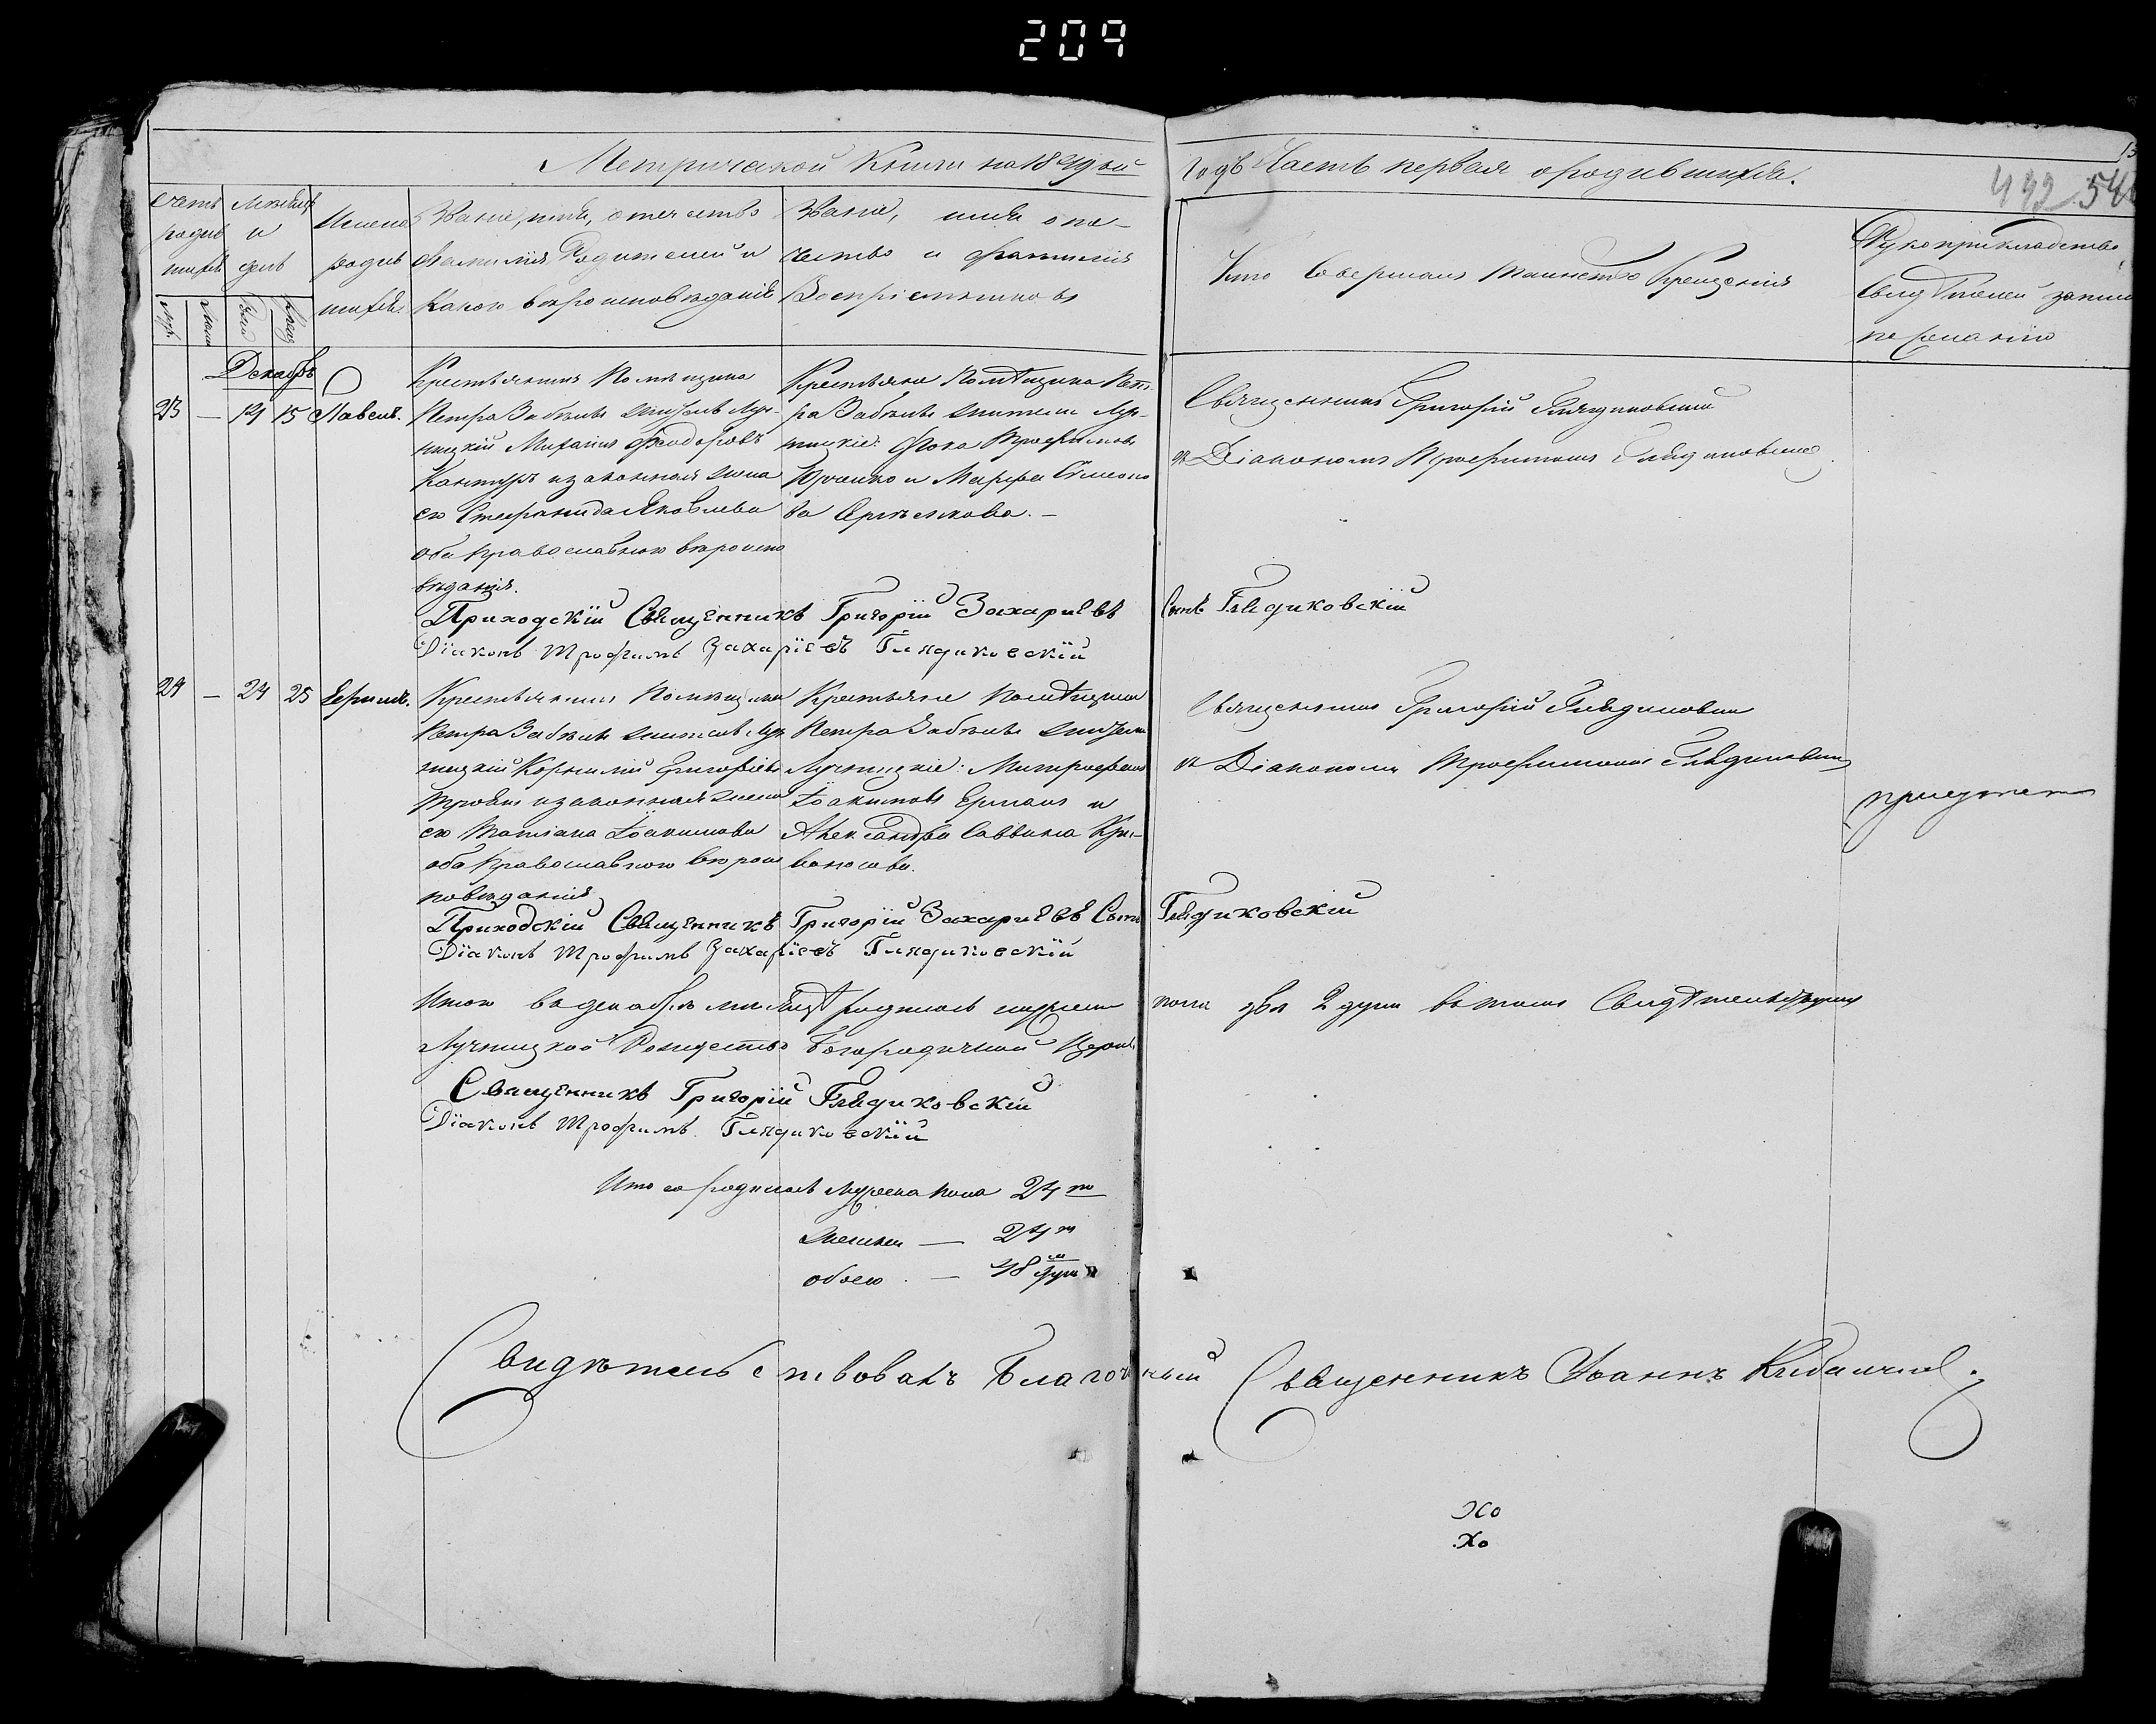 209
Метрической Книги на 1849й годъ Часть первая о родившихся.
492 54
счетъ родившихся
мѣсяцъ и день
Имена родившихся
Званіе, имя, отчество и фамилія Родителей и какого вѣроисповѣданія
Званіе, имя отчество и фамилія Воспріемниковъ
Кто совершалъ таинство Крещенія
Рукоприкладство свидѣтелей записи по желанію
Декабрь
23 — 14 15 Павелъ.
Крестьянинъ Помѣщика
Петра Забѣлы житель Луч-
ницкій Михаилъ Феодоровъ
Кантуръ и законная жена
его Стефанида Яковлева
оба православного вѣроиспо
вѣданія.
Крестьяне Помѣщика Пет-
ра Забѣлы жители Луч-
ницкіе: Фока Трофимовъ
Юрченко и Марфа Симоно
ва
Священникъ Григорій Глядиковскій
съ Діакономъ Трофимомъ Глядиковскимъ
Приходскій Священникъ Григорій Захаріевъ Сынъ Глядиковскій
Діаконъ Трофимъ Захаріевъ Глядиковскій
24 — 24 25 Ефимъ.
Крестьянинъ Помѣщика
Петра Забѣлы житель Луч
ницкій Корнилій Григорьевъ
и законная жена
его Татіана Іоакимова
оба православного вѣроис
повѣданія
Крестьяне Помѣщика
Петра Забѣлы жители
Лучницкіе: Митрофанъ
Іоакимовъ Ермакъ и
Александра Саввина Кри-
воносова.
Священникъ Григорій Глядиковскій
съ Діакономъ Трофимомъ Глядиковскимъ
Приходскій Священникъ Григорій Захаріевъ Сынъ Глядиковскій
Діаконъ Трофимъ Захаріевъ Глядиковскій
Итого въ декабрѣ мѣсяцѣ родилось мужеска пола двѣ 2 души въ томъ свидѣтельствуемъ
Лучницкой Рождество Богородичной Церкви
Священникъ Григорій Глядиковскій
Діаконъ Трофимъ Глядиковскій
Итого родилось мужеска пола 24
Женска — 24
обоего — 48 душъ
Свидѣтельствовалъ Благочинный Священникъ Іоаннъ
Хо
Хо